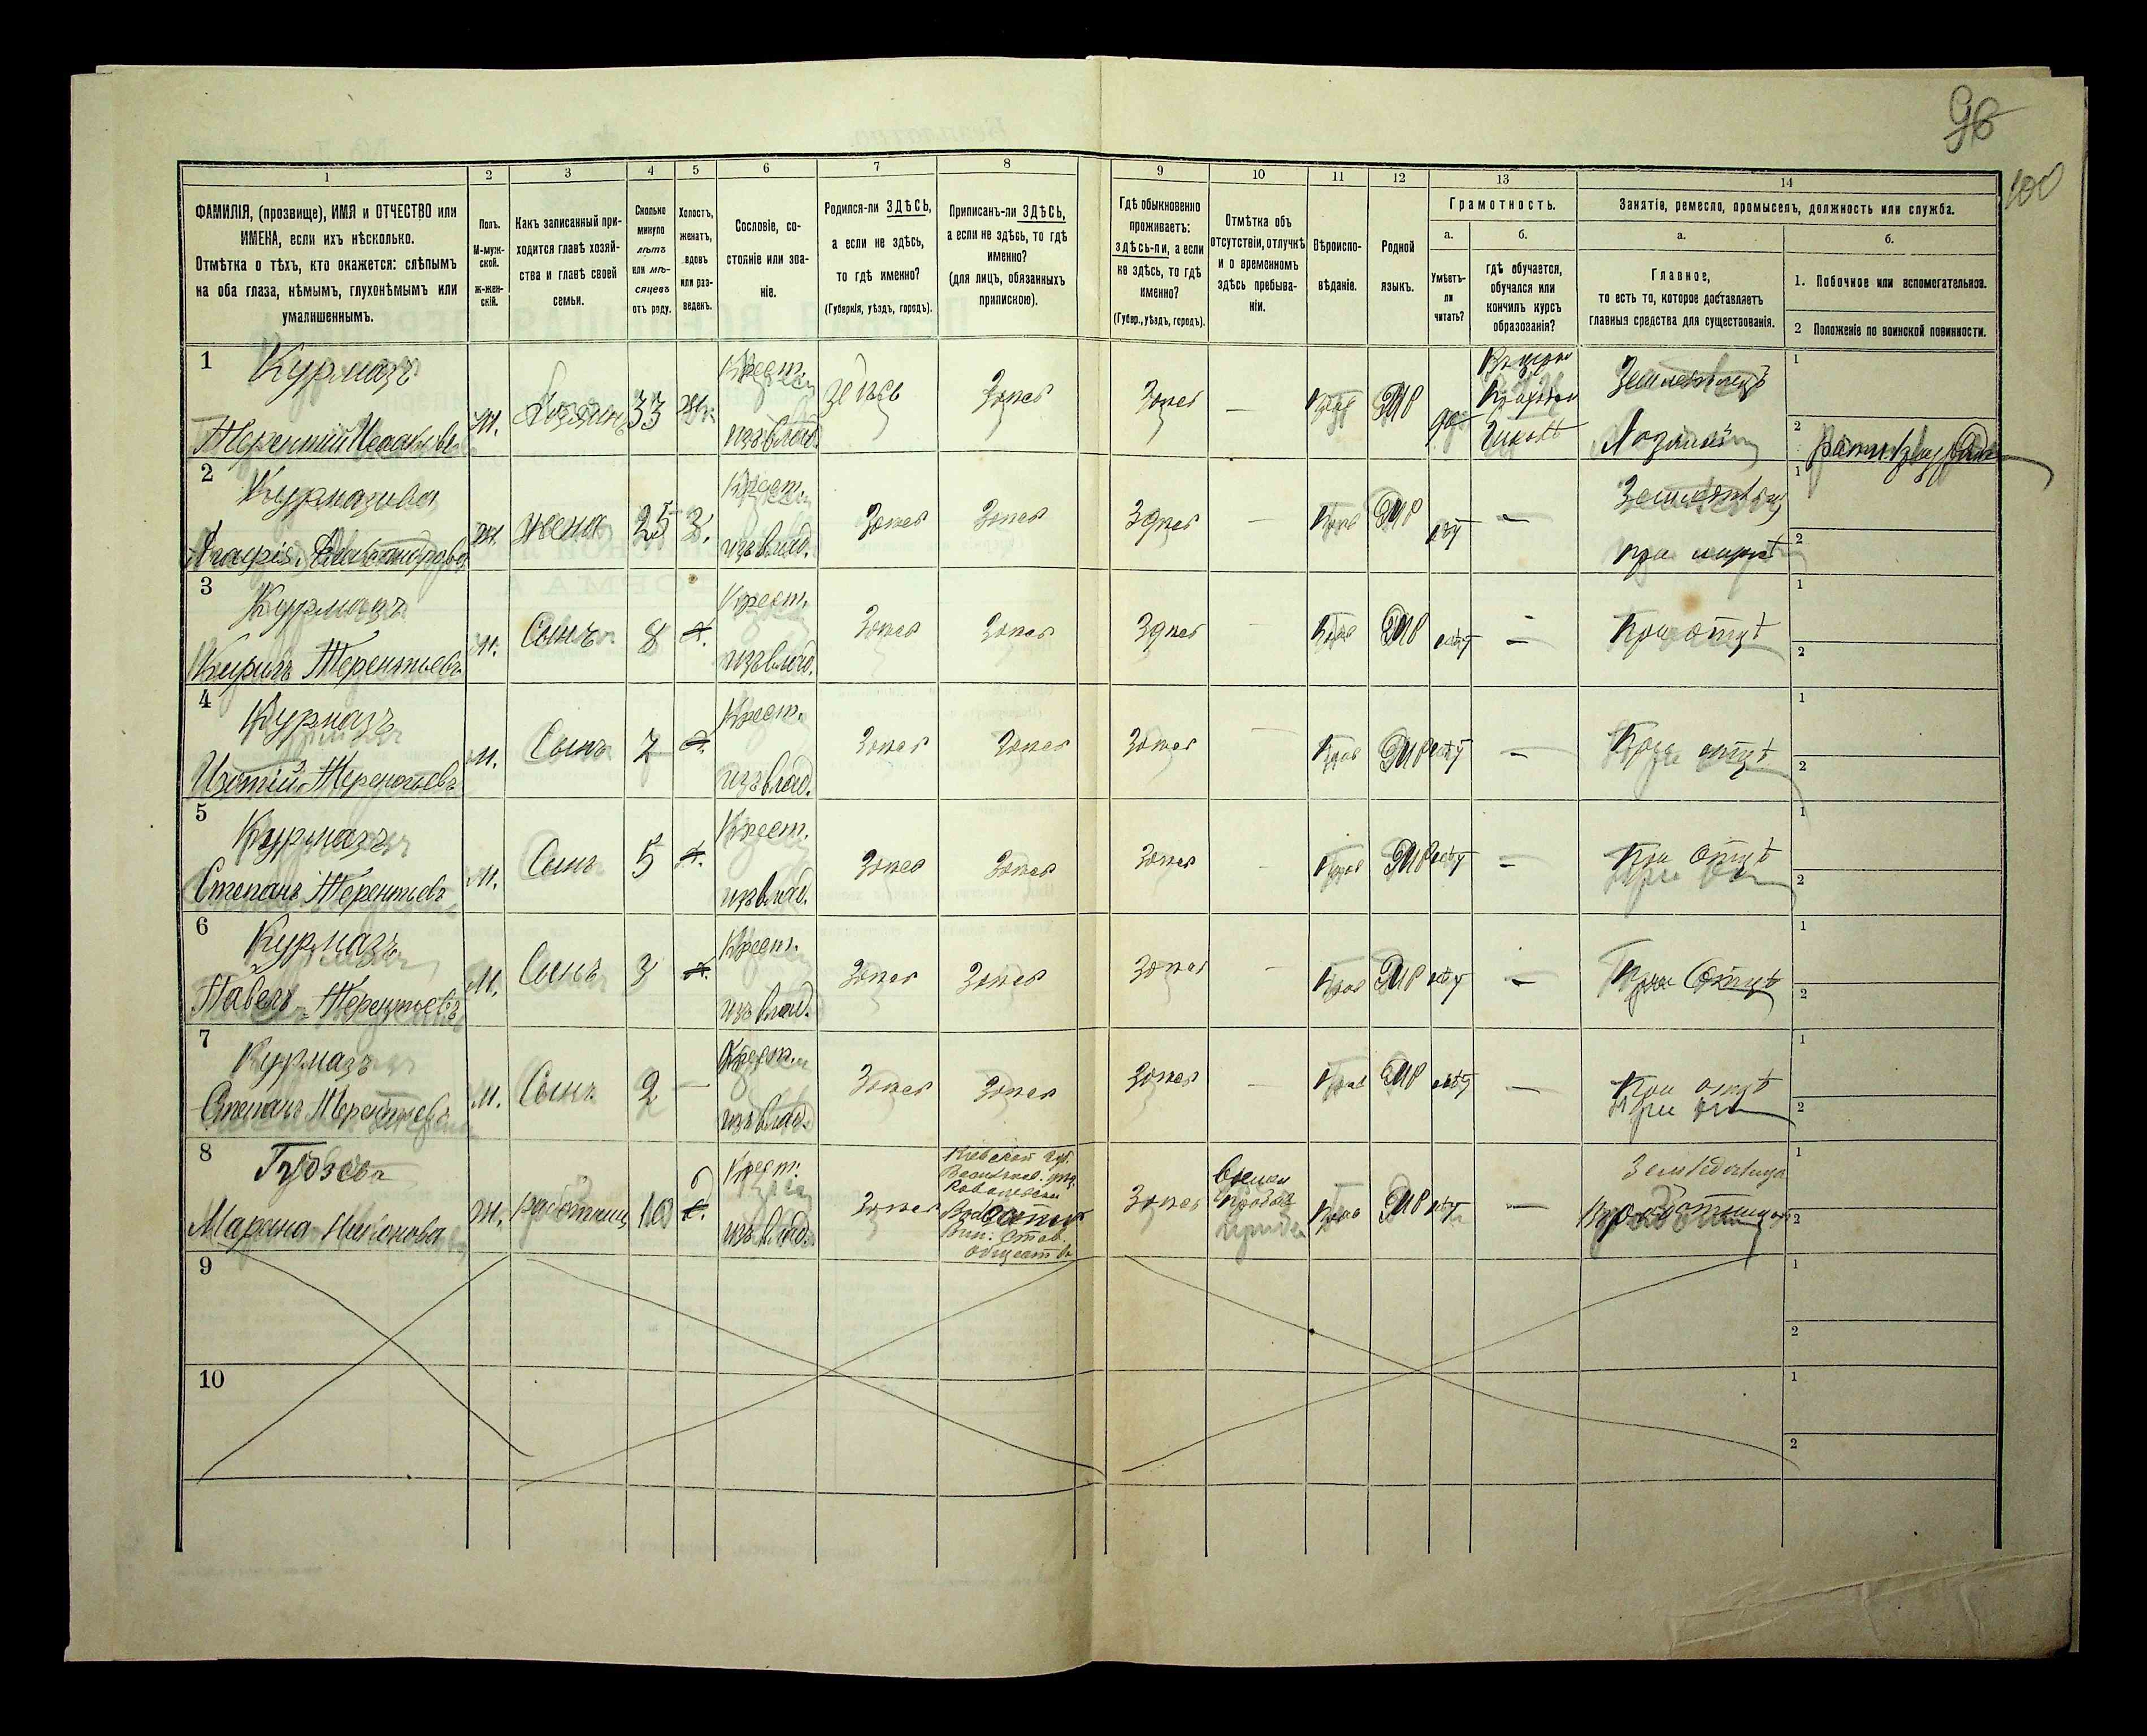 96
100
1
2
3
4
5
6
7
8
9
10
11
12
13
14
ФАМИЛІЯ, (прозвище), ИМЯ и ОТЧЕСТВО или
ИМЕНА, если ихъ нѣсколько.
Отмѣтка о тѣхъ, кто окажется: слѣпымъ
на оба глаза, нѣмымъ, глухонѣмымъ или
умалишеннымъ.
Полъ.
М-муж-
ской.
ж-жен-
скій.
Какъ записанный при-
ходится главѣ хозяй-
ства и главѣ своей
семьи.
Сколько
минуло
лѣтъ
или мѣ-
сяцевъ
отъ роду.
Холостъ,
женатъ,
вдовъ
или раз-
веденъ.
Сословіе, со-
стояніе или зва-
ніе.
Родился-ли ЗДѢСЬ,
а если не здѣсь,
то гдѣ именно?
(Губернія, уѣздъ, городъ).
Приписанъ-ли ЗДѢСЬ,
а если не здѣсь, то гдѣ
именно?
(для лицъ, обязанныхъ
припискою).
Гдѣ обыкновенно
проживаетъ:
здѣсь-ли, а если
не здѣсь, то гдѣ
именно?
(Губер., уѣздъ, городъ).
Отмѣтка объ
отсутствіи, отлучкѣ
и о временномъ
здѣсь пребыва-
ніи.
Вѣроиспо-
вѣданіе.
Родной
языкъ.
Грамотность.
а.
Умѣетъ-
ли
читать?
б.
гдѣ обучается,
обучался или
кончилъ курсъ
образозанія?
Занятіе, ремесло, промыселъ, должность или служба.
а.
Главное,
то есть то, которое доставляетъ
главныя средства для существованія.
б.
1. Побочное или вспомогательное.
2 Положеніе по воинской повинности.
1
Курмазъ
Терентій
м.
Хозяинъ
33
ж.
Крест.
изъ влад.
Здѣсь
Здѣсь
Здѣсь
—
Прав
Мр
да
Земледѣлецъ
Хозяинъ
1
2
2
Курмазова
Александрова
ж.
жена
25
З.
Крест.
изъ влад.
Здѣсь
Здѣсь
Здѣсь
—
Прав
Мр
нѣт
—
при мужѣ
1
2
3
Курмазъ
Кирилъ Терентьевъ
м.
Сынъ
8
х.
Крест.
изъ влад.
Здѣсь
Здѣсь
Здѣсь
—
Прав
Мр
нѣт
—
При отцѣ
1
2
4
Курмазъ
Изотій Терентьевъ
м.
Сынъ
7
х.
Крест.
изъ влад.
Здѣсь
Здѣсь
Здѣсь
—
Прав
Мр
нѣт
—
При отцѣ
1
2
5
Курмазъ
Степанъ Терентьевъ
м.
Сынъ
5
х.
Крест.
изъ влад.
Здѣсь
Здѣсь
Здѣсь
—
Прав
Мр
нѣт
—
При отцѣ
1
2
6
Курмазъ
Павелъ Терентьевъ
м.
Сынъ
3
х.
Крест.
изъ влад.
Здѣсь
Здѣсь
Здѣсь
—
Прав
Мр
нѣт
—
При Отцѣ
1
2
7
Курмазъ
Степанъ Терентьевъ
м.
Сынъ
2
—
Крест.
изъ влад.
Здѣсь
Здѣсь
Здѣсь
—
Прав
Мр
нѣт
—
При отцѣ
1
2
8
Марина
ж.
работниц
Крест.
изъ влад.
Здѣсь
Кіевской губ.
обществ
Здѣсь
Времен
Прав
Мр
нѣт
—
1
2
9
1
2
10
1
2